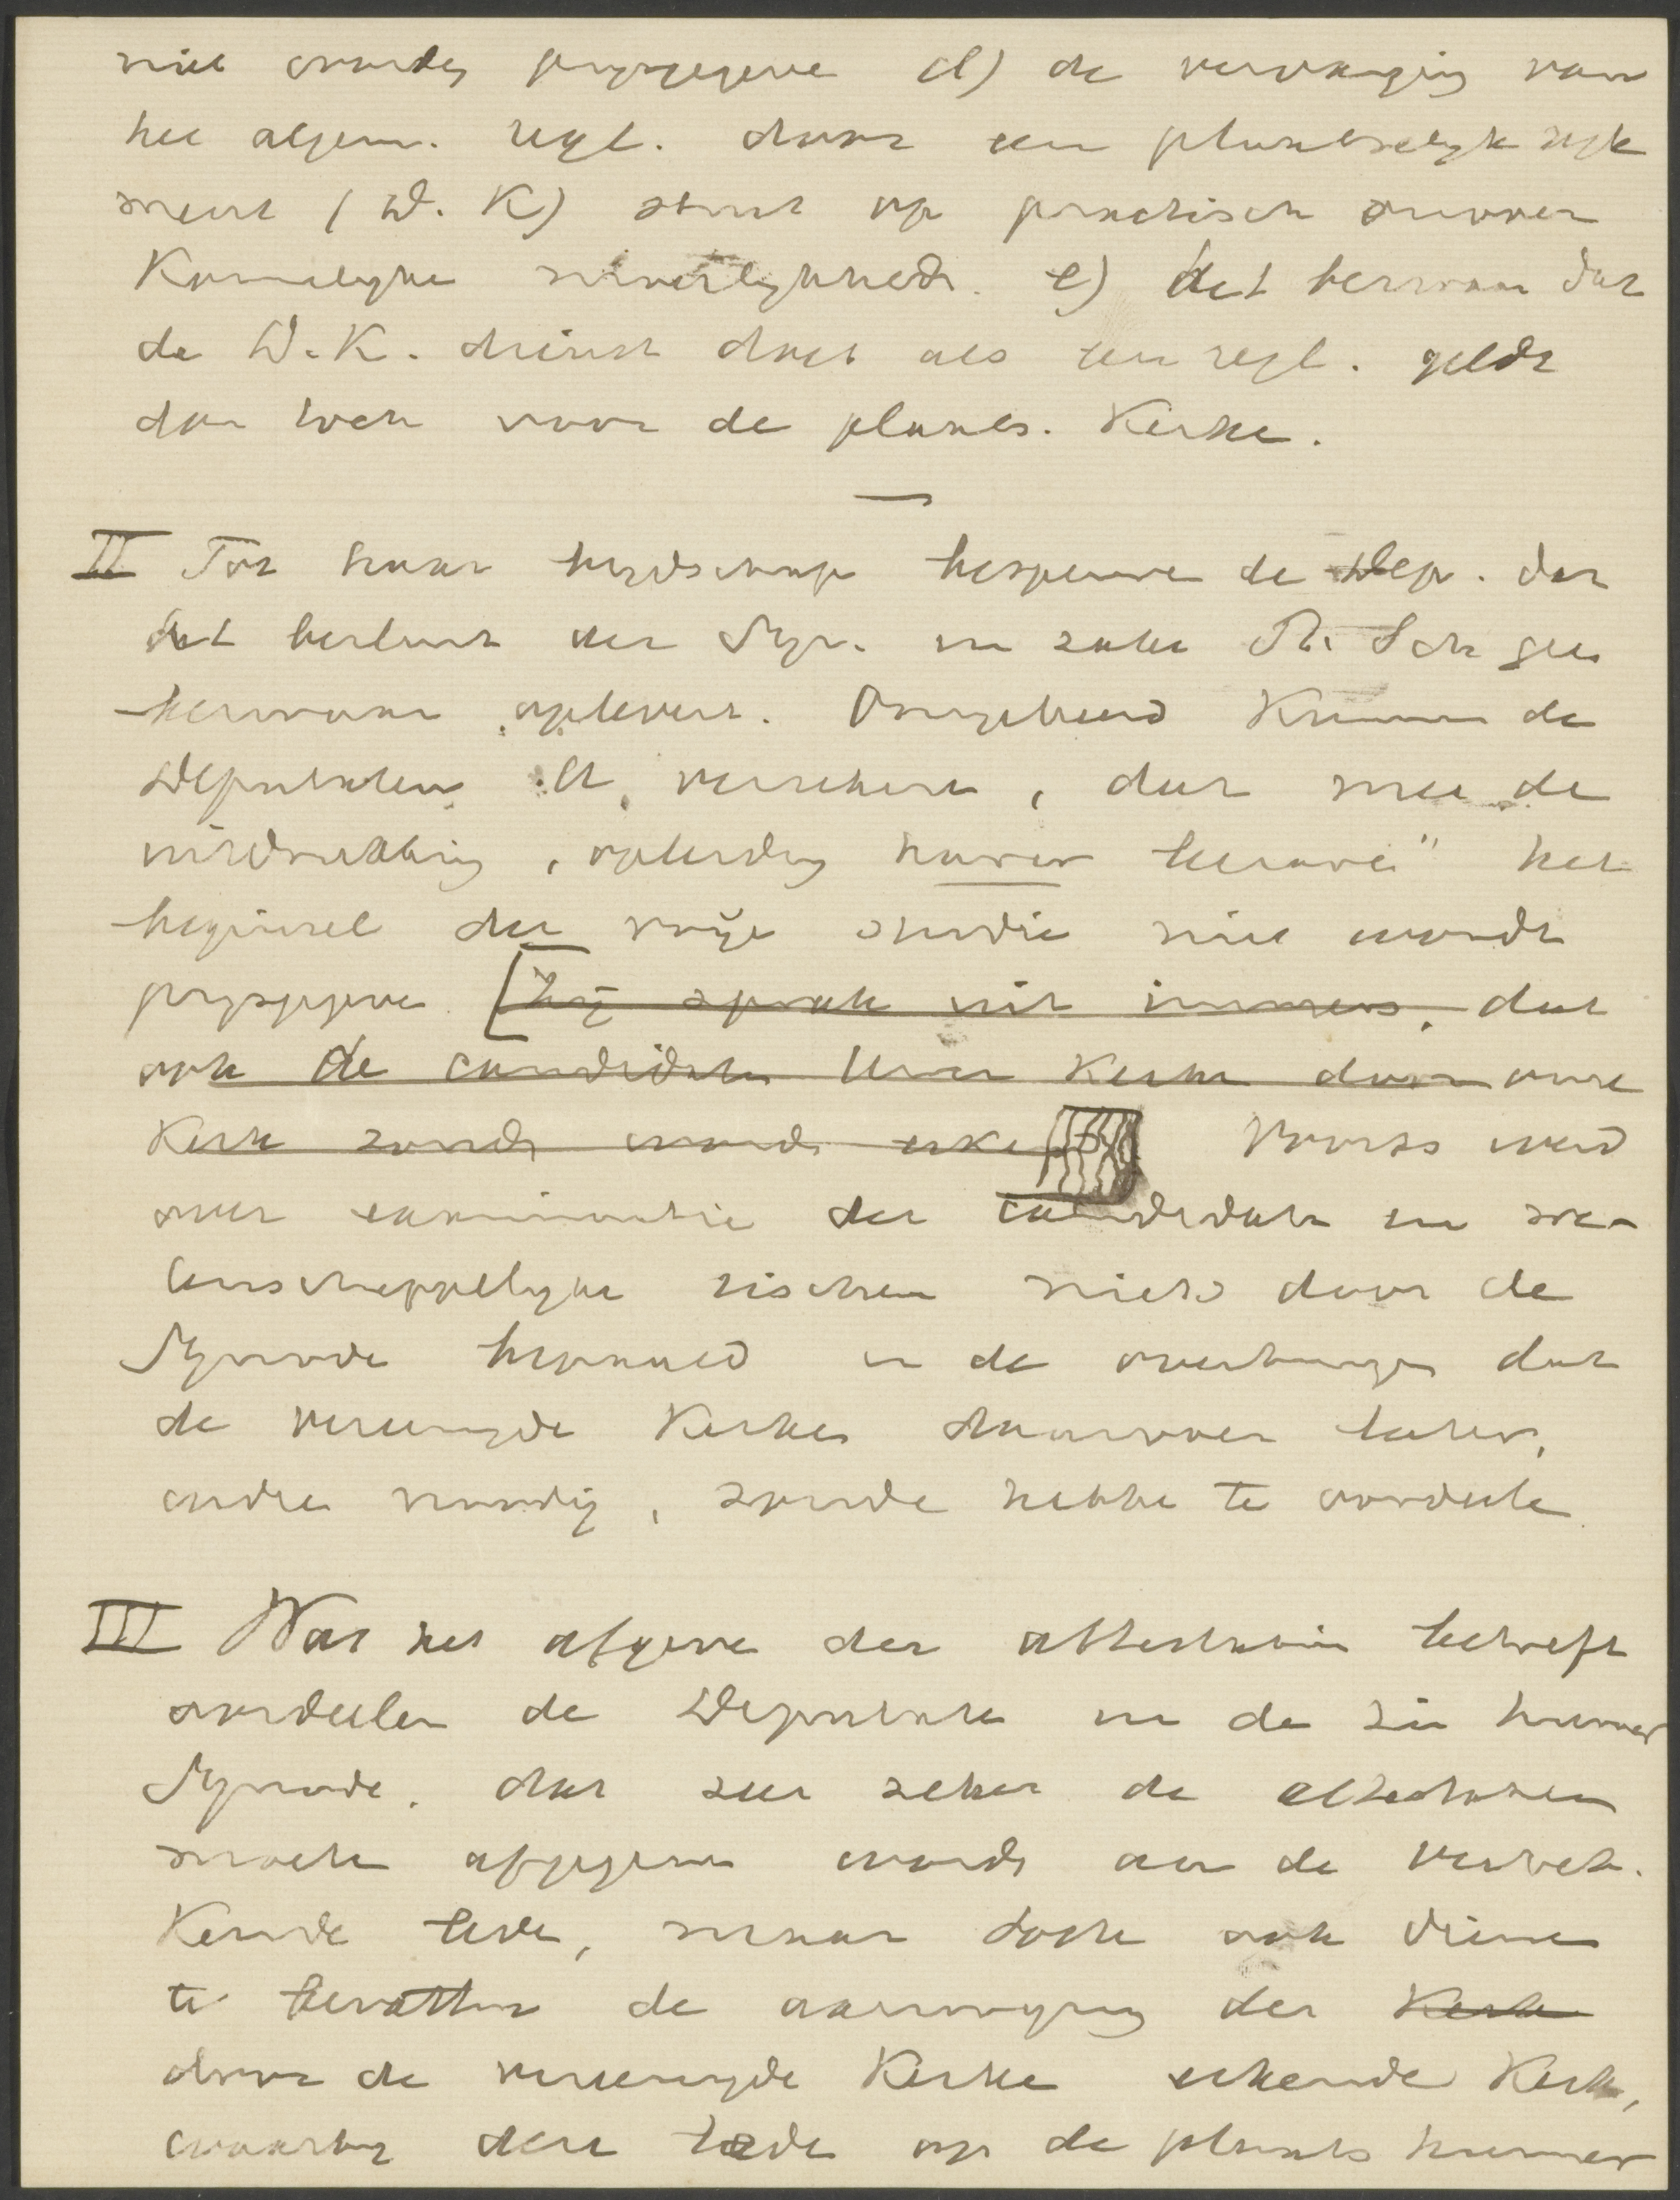 niet worden prijsgegeven d) de vervanging van
het algem. regl. door een plaatselijk regle
ment (D. K) stuit op practisch onover
komelijke moeilijkheden. e) het bezwaar dat
de D. K. dienst doet als een regl. geldt
dan toch voor de plaats. Kerken.
—
II Tot haar blijdschap bespeuren de Dep. dat
het besluit der Syn. in zake Th. Sch geen
bezwaar oplevert. Omgekeerd kunnen de
Deputaten U verzekeren, dat met de
uitdrukking „opleiding harer leeraren" het
beginsel der vrije studie niet wordt
prijsgegeven. [Zij sprak uit immers, dat
ook de candidaten Uwer Kerken door onze
Kerk zouden worden erkend] Voorts werd
over examinatie der candidaten in we-
tenschappelijke zin niets door de
Synode bepaald in de overtuiging dat
de vereenigde Kerken daarover later,
indien noodig, zouden hebben te oordeelen

III Wat het afgeven der attestatien betreft
oordeelen de Deputaten in de zin hunner
Synode, dat zeer zeker de attestatien
moeten afgegeven worden aan de vertrek-
kende leden, maar toch ook dienen
te bevatten de aanwijzing der Kerk
door de vereenigde Kerken erkende Kerk,
waarbij deze leden op de plaats hunner